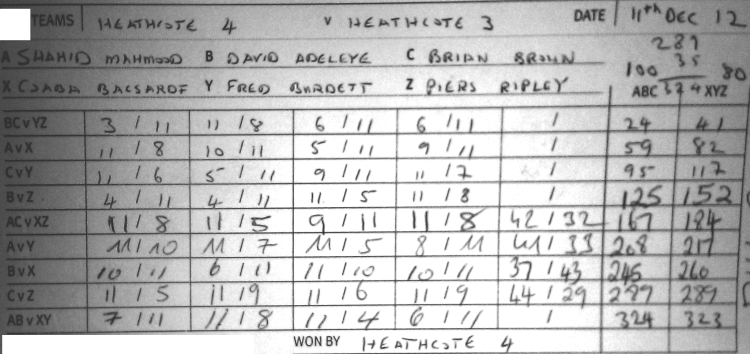 TEAMS HEATHCOTE 4 V HEATHCOTE 3 DATE 11th DEC 12
A SHAHID MAHMOOD B DAVID ADELEYE C BRIAN BROWN 289
X CSABA BACSARDF Y FRED BURDETT Z PIERS RIPLEY 100 35 80
ABC 324 XYZ
BCvYZ 3 / 11 11 / 8 6 / 11 6 / 11 / 24 41
AvX 11 / 8 10 / 11 5 / 11 9 / 11 / 59 82
CvY 11 / 6 5 / 11 9 / 11 11 / 7 / 95 117
BvZ 4 / 11 4 / 11 11 / 5 11 / 8 / 125 152
ACvXZ 11 / 8 11 / 5 9 / 11 11 / 8 42 / 32 167 184
AvY 11 / 10 11 / 7 11 / 5 8 / 11 41 / 33 208 217
BvX 10 / 11 6 / 11 11 / 10 10 / 11 37 / 43 245 260
CvZ 11 / 5 11 / 9 11 / 6 11 / 9 44 / 29 289 289
ABvXY 7 / 11 11 / 8 11 / 4 6 / 11 / 324 323
WON BY HEATHCOTE 4